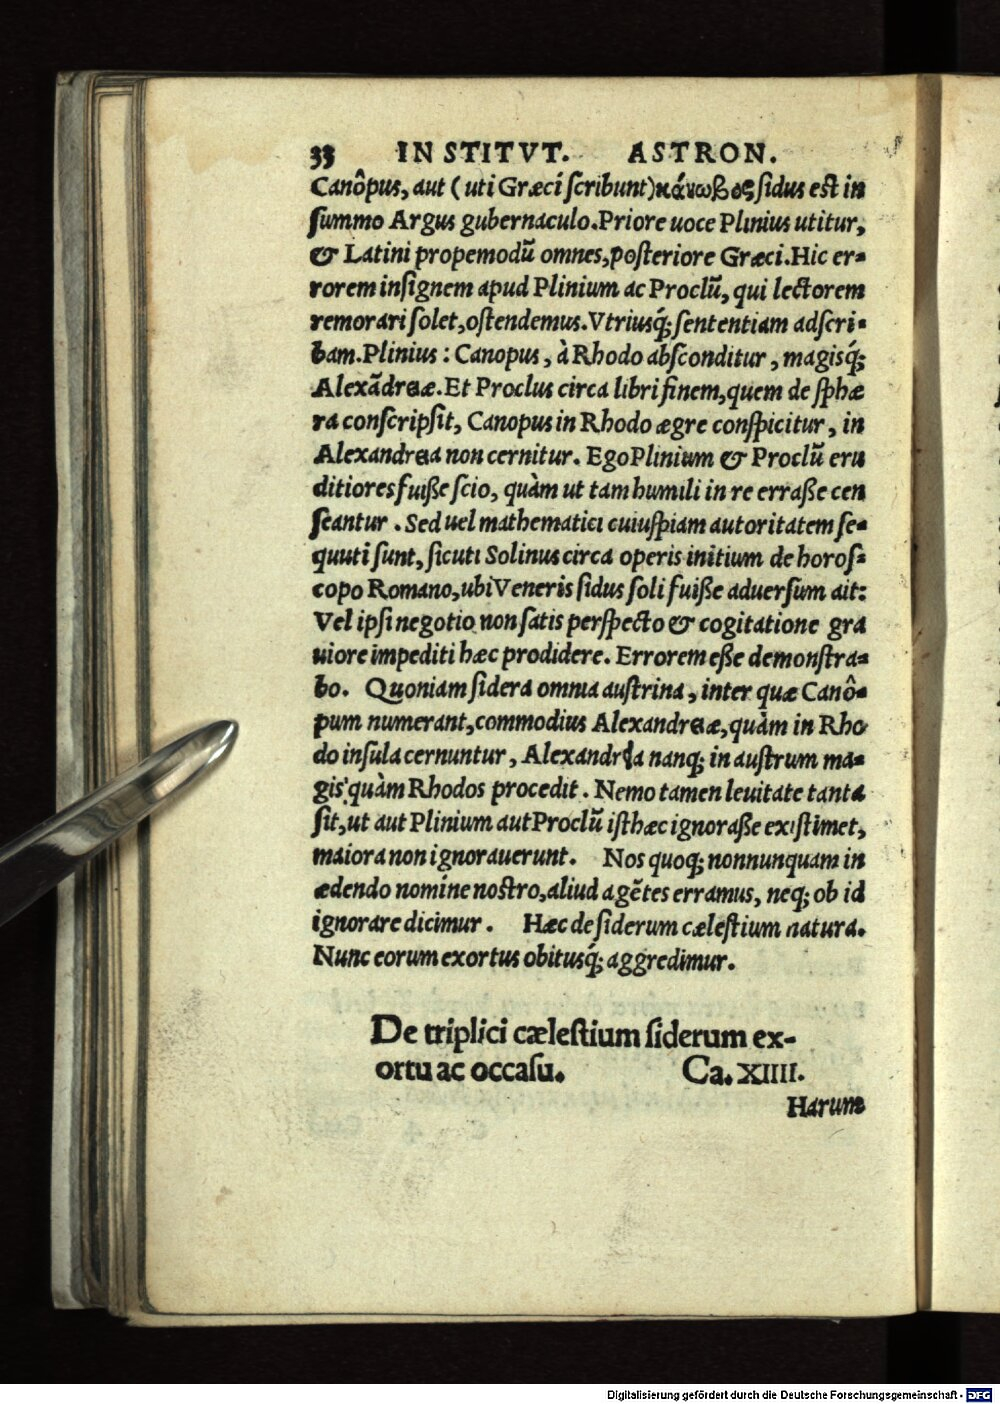 33 INSTITVT. ASTRON.
Canôpus, aut (uti Græci ſcribunt) κάνωβος ſidus est in
ſummo Argus gubernaculo. Priore uoce Plinius utitur,
& Latini propemodū omnes, poſteriore Græci. Hic er-
rorem inſignem apud Plinium ac Proclū, qui lectorem
remorari ſolet, oſtendemus. Vtriusq́; ſententiam adſcri-
bam. Plinius: Canopus, à Rhodo abſconditur, magisq́;
Alexādreæ. Et Proclus circa libri finem, quem de ſphæ
ra conſcripſit, Canopus in Rhodo ægre conſpicitur, in
Alexandrea non cernitur. Ego Plinium & Proclū eru
ditiores fuiſſe ſcio, quàm ut tam humili in re erraſſe cen
ſeantur. Sed uel mathematici cuiuſpiam autoritatem ſe-
quuti ſunt, ſicuti Solinus circa operis initium de horoſ-
copo Romano, ubi Veneris ſidus ſoli fuiſſe aduerſum ait:
Vel ipſi negotio non ſatis perſpecto & cogitatione gra
uiore impediti hæc prodidere. Errorem eſſe demonſtra-
bo. Quoniam ſidera omnia auſtrina, inter quæ Canô-
pum numerant, commodius Alexandreæ, quàm in Rho
do inſula cernuntur, Alexandria nanq; in auſtrum ma-
gis quàm Rhodos procedit. Nemo tamen leuitate tanta
ſit, ut aut Plinium aut Proclū iſthæc ignoraſſe exiſtimet,
maiora non ignorauerunt. Nos quoq; nonnunquam in
ædendo nomine nostro, aliud agētes erramus, neq; ob id
ignorare dicimur. Hæc de ſiderum cæleſtium natura.
Nunc eorum exortus obitusq́; aggredimur.
De triplici cæleſtium ſiderum ex-
ortu ac occaſu. Ca. XIIII.
Harum
Digitalisierung gefördert durch die Deutsche Forschungsgemeinschaft - DFG